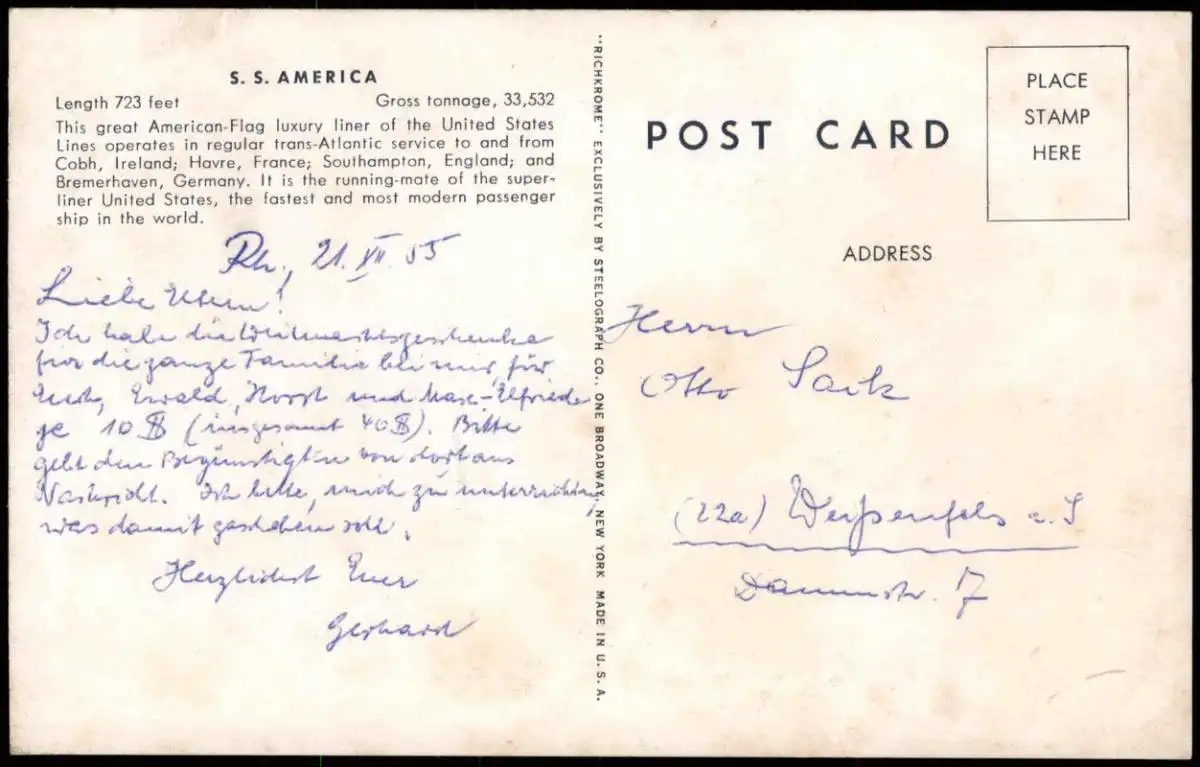 S. S. AMERICA
Length 723 feet Gross tonnage, 33,532
This great American-Flag luxury liner of the United States
Lines operates in regular trans-Atlantic service to and from
Cobh, Ireland; Havre, France; Southampton, England; and
Bremerhaven, Germany. It is the running-mate of the super-
liner United States, the fastest and most modern passenger
ship in the world.
21. XII. 55
Liebe Eltern!
Ich habe die Weihnachtsgeschenke
für die ganze Familie bei mir, für
Euch, Ewald, Horst und Marg-Elfriede
je 10 $ (insgesamt 40 $). Bitte
gebt den Begünstigten von dort aus
Nachricht. Ich bitte, mich zu unterrichten,
was damit geschehen soll.
Herzlichst Euer
Gerhard
"RICHKROME" EXCLUSIVELY BY STEELOGRAPH CO., ONE BROADWAY, NEW YORK MADE IN U. S. A.
POST CARD
PLACE
STAMP
HERE
ADDRESS
Herrn
Otto Sack
(22a) Weißenfels a. S
Dammstr. 7